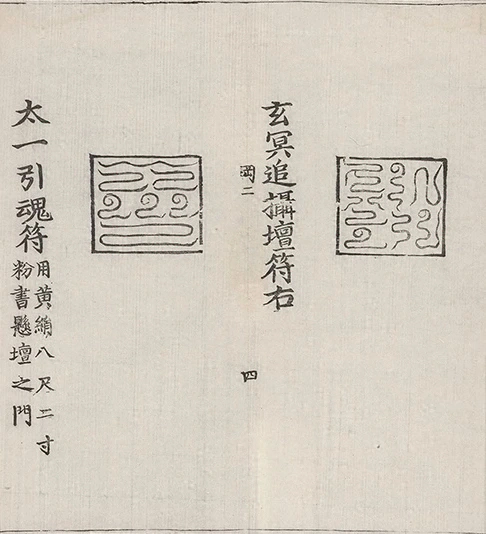 玄冥追攝壇符右
岡二
四
太一引魂符用黃繒八尺二寸
粉書懸壇之門